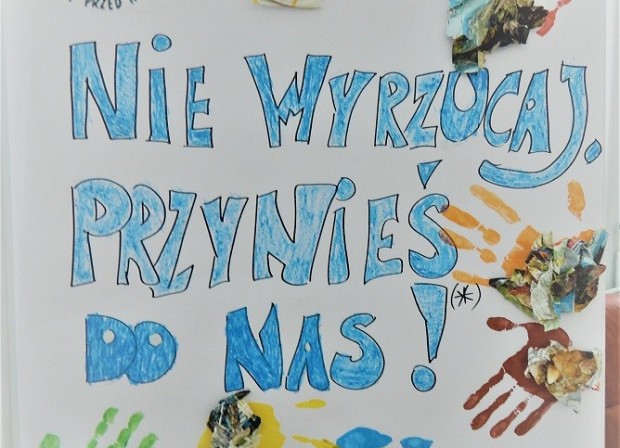 PRZED
NIE WYRZUCAJ,
PRZYNIEŚ
DO NAS! (*)